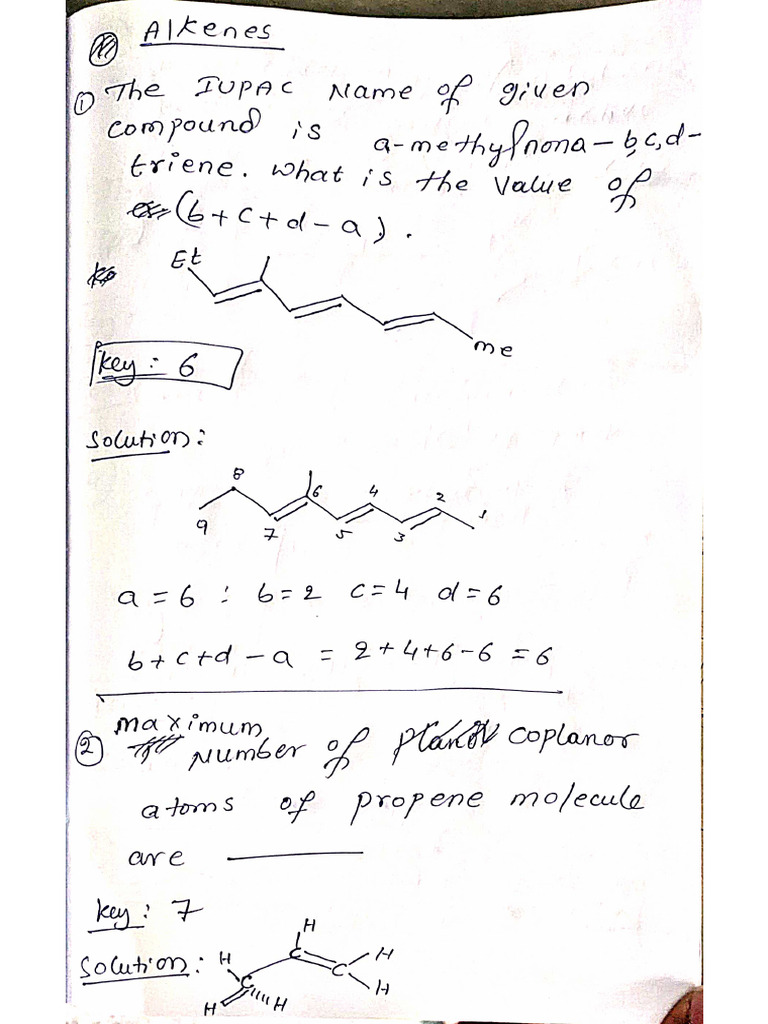 Alkenes
① The IUPAC Name of given
compound is a-methylnona-b,c,d-
triene. What is the value of
(b+c+d-a).
Et
me
Key: 6
Solution:
8
6
4
2
1
9
7
5
3
a=6 : b=2 c=4 d=6
b+c+d-a = 2+4+6-6 = 6
② maximum
Number of coplanor
atoms of propene molecule
are ______
Key: 7
Solution:
H
H C C H
C H
H H